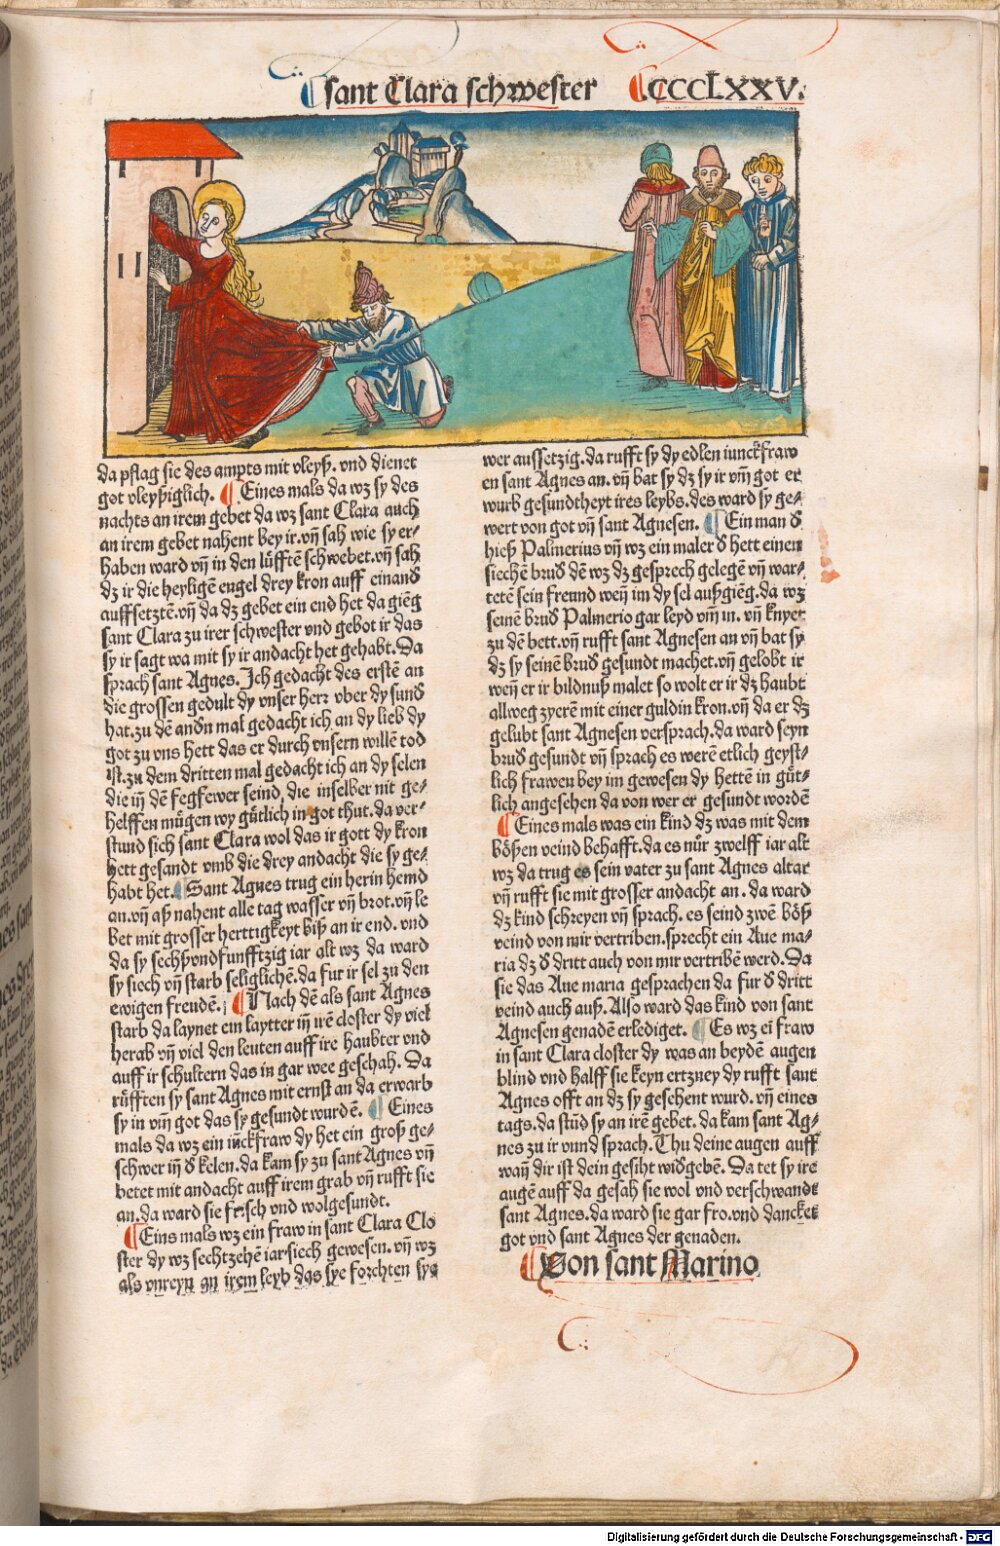 sant Clara schwester CCCCLXXV.
da pflag sie des ampts mit vleyß. vnd dienet
got vleyßiglich. Eines mals da wz sy des
nachts an irem gebet da wz sant Clara auch
an irem gebet nahent bey ir. vñ sah wie sy er⸗
haben ward vñ in den lüfftē schwebet. vñ sah
dz ir die heyligē engel drey kron auff einand
auffsetztē. vñ da dz gebet ein end het da giēg
sant Clara zu irer schwester vnd gebot ir das
sy ir sagt wa mit sy ir andacht het gehabt. Da
sprach sant Agnes. Ich gedacht des erstē an
die grossen gedult dy vnser herz vber dy sund
hat. zu dē andn mal gedacht ich an dy lieb dy
got zu vns hett das er durch vnsern willē tod
ist. zu dem dritten mal gedacht ich an dy selen
die iñ dē fegfewer seind, die inselber nit ge⸗
helffen mügen wy gütlich in got thut. da ver⸗
stund sich sant Clara wol das ir gott dy kron
hett gesandt vmb die drey andacht die sy ge⸗
habt het. Sant Agnes trug ein herin hemd
an. vñ aß nahent alle tag wasser vñ brot. vñ le
bet mit grosser herttigkeyt biß an ir end. vnd
da sy sechßvndfunfftzig iar alt wz da ward
sy siech vñ starb seliglichē. da fur ir sel zu den
ewigen freudē. Nach dē als sant Agnes
starb da laynet ein laytter iñ irē closter dy viel
herab vñ viel den leuten auff ire haubter vnd
auff ir schultern das in gar wee geschah. Da
rüfften sy sant Agnes mit ernst an da erwarb
sy in vm̄ got das sy gesundt wurdē. Eines
mals da wz ein iūckfraw dy het ein groß ge⸗
schwer iñ d kelen. da kam sy zu sant Agnes vñ
betet mit andacht auff irem grab vñ rufft sie
an. da ward sie frisch vnd wolgesundt.
Eins mals wz ein fraw in sant Clara Clo
ster dy wz sechtzehē iar siech gewesen. vñ wz
als vnreyn an irem leyb das sye forchten sye
wer aussetzig. da rufft sy dy edlen iunckfraw
en sant Agnes an. vñ bat sy dz sy ir vm̄ got er
wurb gesundtheyt ires leybs. des ward sy ge⸗
wert von got vñ sant Agnesen. Ein man d
hieß Palmerius vñ wz ein maler d hett einen
siechē brud dē wz dz gesprech gelegē vñ war⸗
tetē sein freund weñ im dy sel außgiēg. da wz
seinē brud Palmerio gar leyd vm̄ in. vñ knyet
zu dē bett. vñ rufft sant Agnesen an vñ bat sy
dz sy seinē brud gesundt machet. vñ gelobt ir
weñ er ir bildnuß malet so wolt er ir dz haubt
allweg zyerē mit einer guldin kron. vñ da er dz
gelubt sant Agnesen versprach. da ward seyn
brud gesundt vñ sprach es werē etlich geyst⸗
lich frawen bey im gewesen dy hettē in güt⸗
lich angesehen da von wer er gesundt wordē
Eines mals was ein kind dz was mit dem
bößen veind behafft. da es nür zwelff iar alt
wz da trug es sein vater zu sant Agnes altar
vñ rufft sie mit grosser andacht an. da ward
dz kind schreyen vñ sprach. es seind zwē böß
veind von mir vertriben. sprecht ein Aue ma⸗
ria dz d dritt auch von mir vertribē werd. Da
sie das Aue maria gesprachen da fur d dritt
veind auch auß. Also ward das kind von sant
Agnesen genadē erlediget. Es wz ei fraw
in sant Clara closter dy was an beydē augen
blind vnd halff sie keyn ertzney dy rufft sant
Agnes offt an dz sy gesehent wurd. vñ eines
tags. da stūd sy an irē gebet. da kam sant Ag⸗
nes zu ir vnnd sprach. Thu deine augen auff
wañ dir ist dein gesiht widgebē. Da tet sy ire
augē auff da gesah sie wol vnd verschwandt
sant Agnes. da ward sie gar fro. vnd dancket
got vnd sant Agnes der genaden.
Von sant Marino
Digitalisierung gefördert durch die Deutsche Forschungsgemeinschaft - DFG